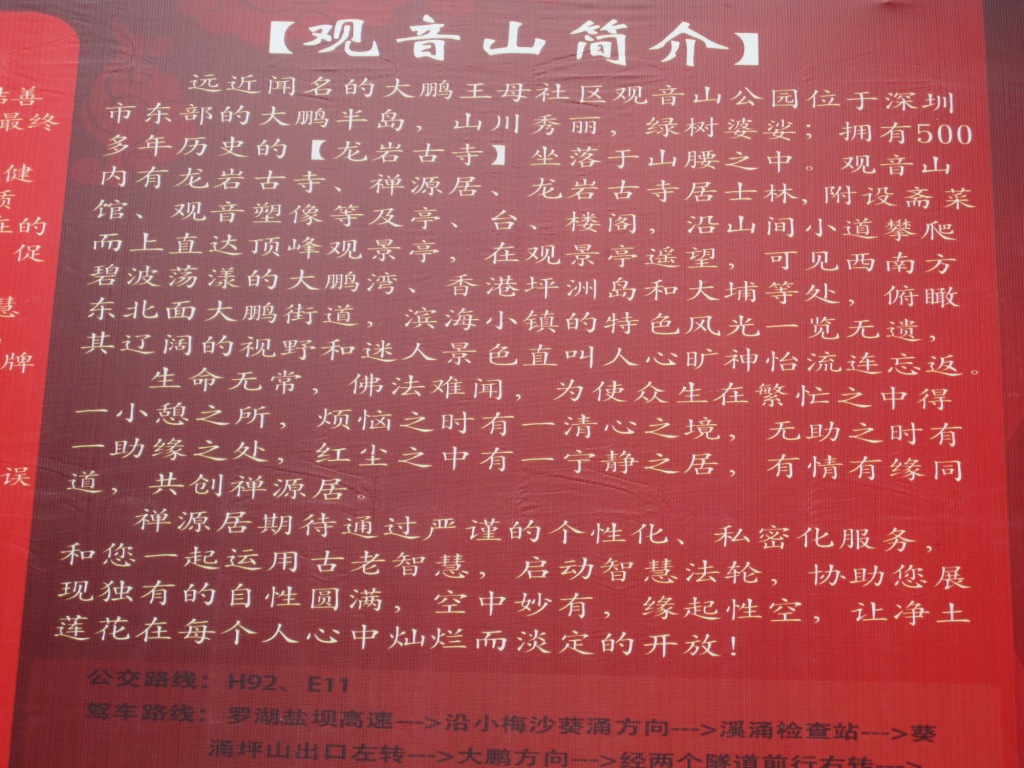 【观音山简介】
远近闻名的大鹏王母社区观音山公园位于深圳
市东部的大鹏半岛，山川秀丽，绿树婆娑；拥有500
多年历史的【龙岩古寺】坐落于山腰之中。观音山
内有龙岩古寺、禅源居、龙岩古寺居士林,附设斋菜
馆、观音塑像等及亭、台、楼阁，沿山间小道攀爬
而上直达顶峰观景亭，在观景亭遥望，可见西南方
碧波荡漾的大鹏湾、香港坪洲岛和大埔等处，俯瞰
东北面大鹏街道，滨海小镇的特色风光一览无遗，
其辽阔的视野和迷人景色直叫人心旷神怡流连忘返。
生命无常，佛法难闻，为使众生在繁忙之中得
一小憩之所，烦恼之时有一清心之境，无助之时有
一助缘之处，红尘之中有一宁静之居，有情有缘同
道，共创禅源居。
禅源居期待通过严谨的个性化、私密化服务，
和您一起运用古老智慧，启动智慧法轮，协助您展
现独有的自性圆满，空中妙有，缘起性空，让净土
莲花在每个人心中灿烂而淡定的开放！
公交路线：H92、E11
驾车路线：罗湖盐坝高速--->沿小梅沙葵涌方向--->溪涌检查站--->葵
涌坪山出口左转--->大鹏方向--->经两个隧道前行右转--->
善
最终
健
质
在的
促
慧
牌
误